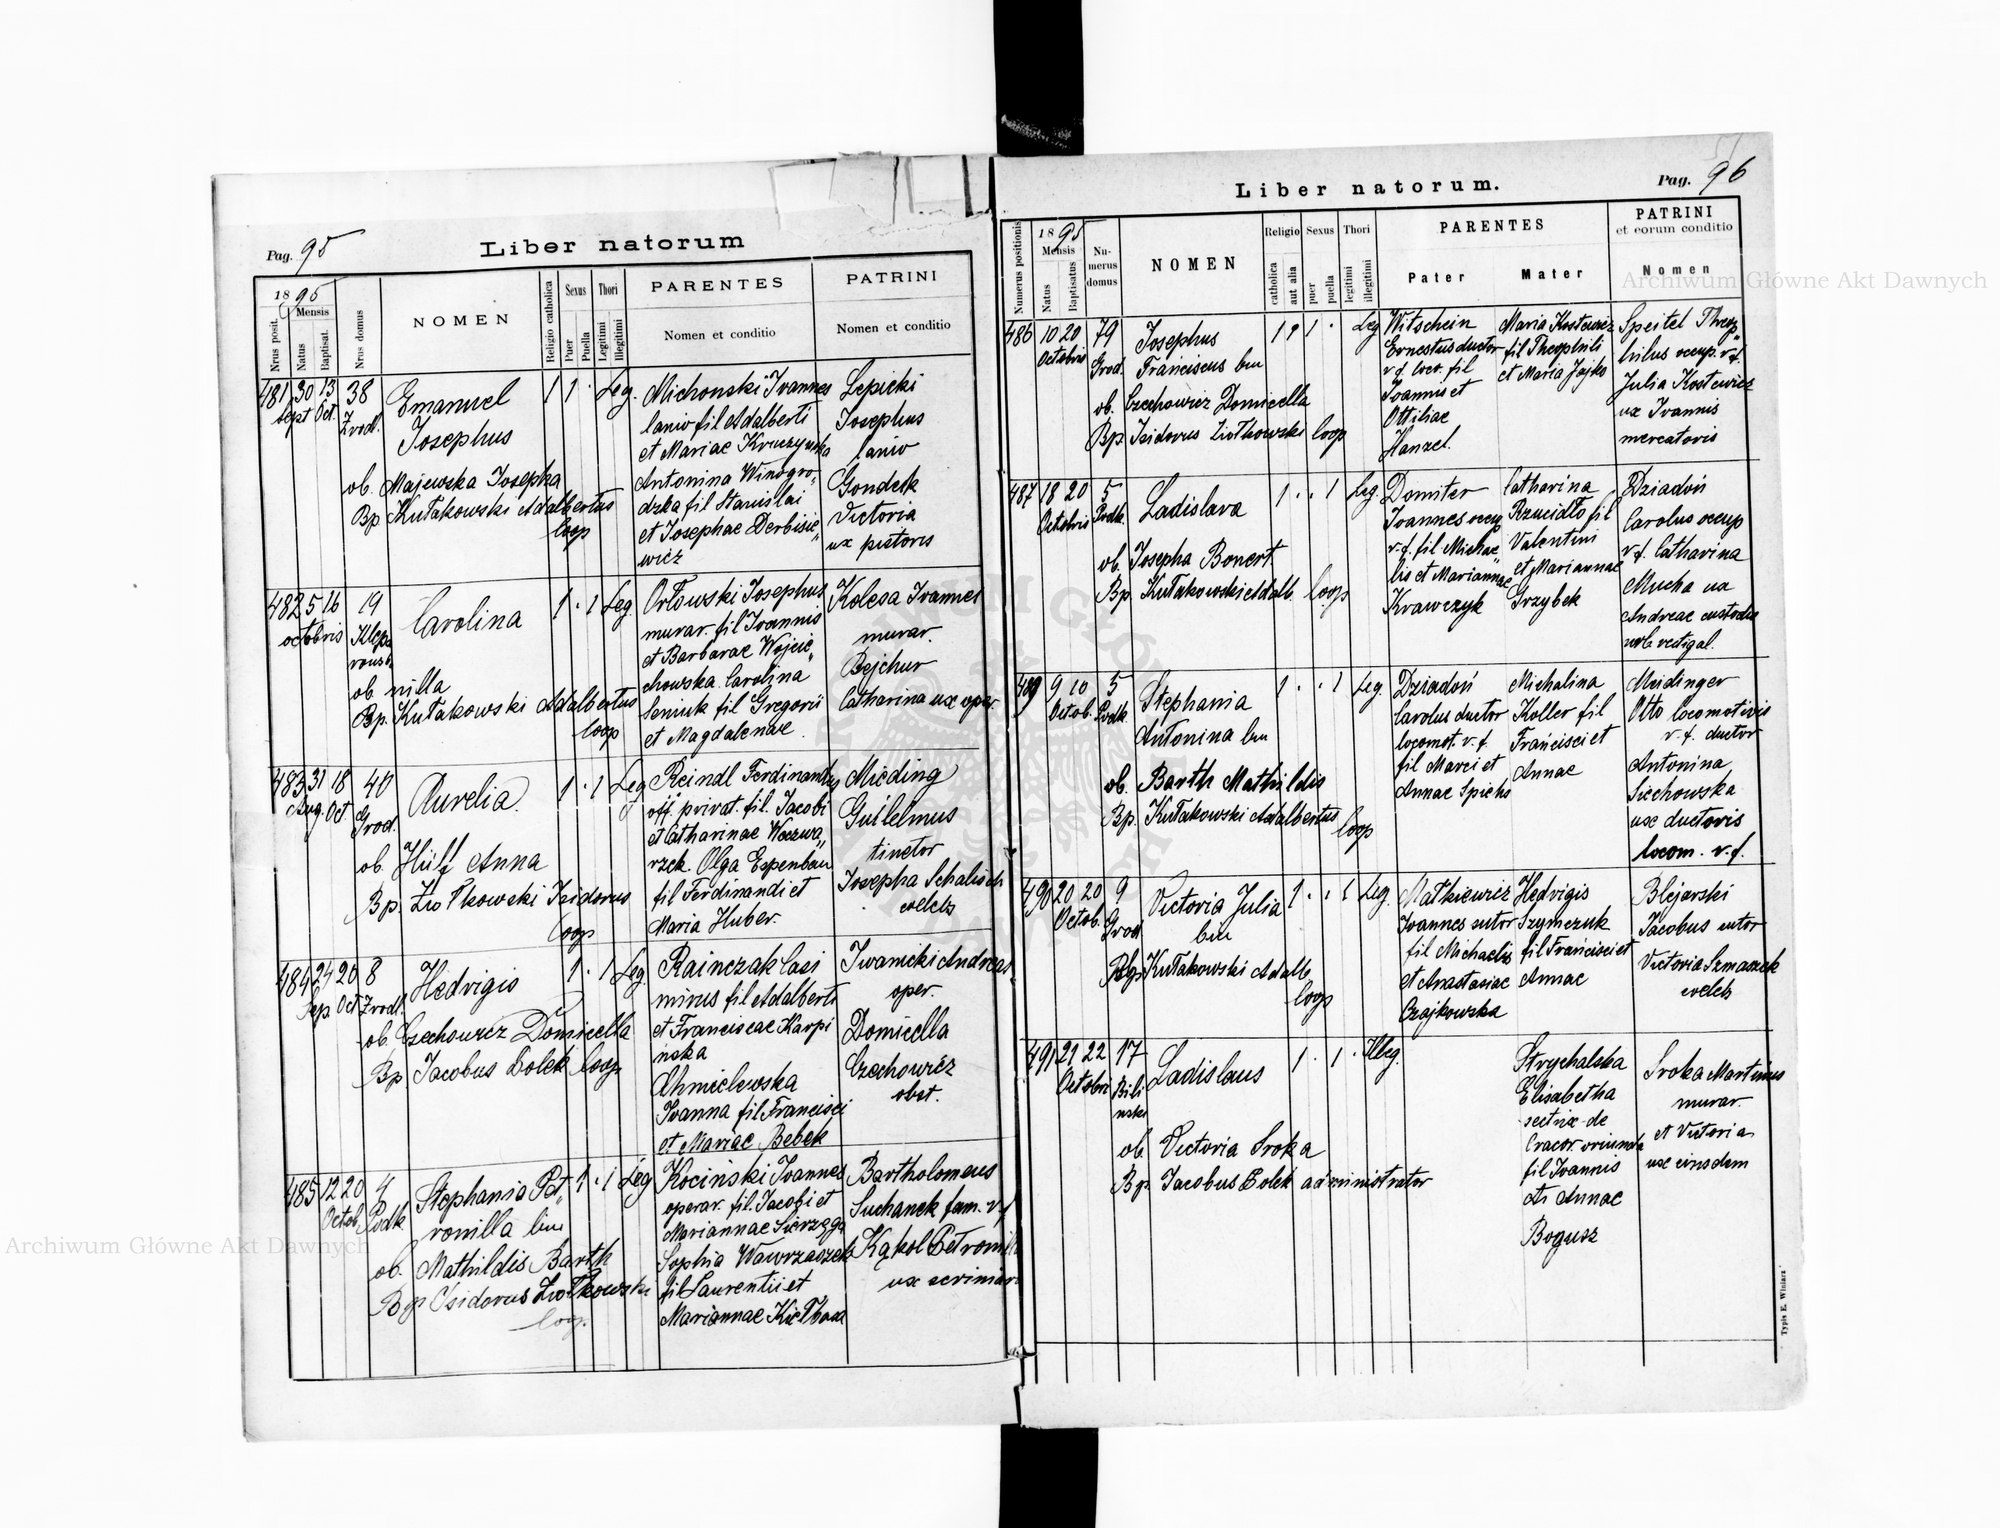 Pag. 95
Liber natorum
1895
Mensis
Nrus posit.
Natus
Baptisat.
Nrus domus
NOMEN
Religio catholica
Sexus
Puer
Puella
Thori
Legitimi
Illegitimi
PARENTES
Nomen et conditio
PATRINI
Nomen et conditio
481 30 13 38
Sept Oct. Zrodl.
Emanuel
Josephus
1 1 . Leg.
ob. Majewska Josepha
Bp Kułakowski Adalbertus
loop
Michonski Joannes
lanio fil Adalberti
et Mariae Kruczynska
Antonina Winogro„
dzka fil Stanislai
et Josephae Derbisie„
wicz
Lepicki
Josephus
lanio
Gondek
Victoria
ux pistoris
482 5 16 19
octobris
Carolina
1 . 1 Leg.
ob. nilla
Bp. Kułakowski Adalbertus
loop
Orłowski Josephus
murar. fil Joannis
et Barbarae Wojcie„
chowska. Carolina
Seniuk fil Gregorii
et Magdalenae.
Kolesa Joannes
murar.
Bejchur
Catharina ux oper
483 31 18 40
Aug. Oct. Grod.
Aurelia.
1 . 1 Leg
ob. Hüff Anna
Bp. Ziołkowski Isidorus
loop
Reindl Ferdinandus
off. privat. fil. Jacobi
et Catharinae Woczwa„
rzek. Olga Espenbau
fil Ferdinandi et
Maria Huber.
Mieding
Guilelmus
tinctor
Josepha Schalisch
coelebs
484 24 20 8
Sep. Oct Zrodl.
Hedvigis
1 . 1 Leg.
ob. Czechowicz Domicella
Bp Jacobus Bolek loop
Rainczak Casi
mirus fil Adalberti
et Franciscae Karpi
nska
Chmielewska
Joanna fil Francisci
et Mariae Bebek
Iwanicki Andreas
oper.
Domicella
Czechowicz
obst.
485 12 20 4
Octob. Podk
Stephania Pet„
ronilla bin
1 . 1 Leg
ob. Mathildis Barth
Bp Isidorus Ziołkowski
loop.
Kociński Joannes
operar. fil. Jacobi et
Mariannae Sierzęga
Sophia Wawrzaszek
fil Laurentii et
Mariannae Kiełbasa
Bartholomeus
Suchanek fam. v. f
Kąkol Petronilla
ux scriniar
Liber natorum.
Pag. 96
Numerus positionis
1895
Mensis
Natus
Baptisatus
Nu-
merus
domus
NOMEN
Religio
catholica
aut alia
Sexus
puer
puella
Thori
legitimi
illegitimi
PARENTES
Pater
Mater
PATRINI
et eorum conditio
Nomen
486 10 20 79
Octobris Grod.
Josephus
Franciscus bin
1 1 . Leg
ob. Czechowicz Domicella
Bp. Isidorus Ziołkowski loop
Witschein
Ernestus ductor
v. f. loco. fil
Joannis et
Ottiliae
Hanzel.
Maria Kostewicz
fil Theophili
et Maria Jajko
Speitel Theop„
hilus occup. v. f.
Julia Kostewicz
ux Joannis
mercatoris
487 18 20 5
Octobris Podk.
Ladislava
1 . . 1 Leg.
ob. Josepha Bonert.
Bp Kułakowski Adalb. loop
Domiter
Joannes occup
v. f. fil Michae„
lis et Mariannae
Krawczyk
Catharina
Rzucidło fil
Valentini
et Mariannae
Grzybek
Dziadoń
Carolus occup
v. f. Catharina
Mucha ux
Andreae custodis
urb vectigal.
489 9 10 5
Octob. Podk.
Stephania
Antonina bin
1 . . 1 Leg.
ob. Barth Mathildis
Bp. Kułakowski Adalbertus
loop
Dziadoń
Carolus ductor
locomot. v. f.
fil Marci et
Annae Spichs
Michalina
Koller fil
Francisci et
Annae
Meidinger
Otto locomotivis
v. f. ductor
Antonina
Siechowska
ux ductoris
locom. v. f.
490 20 20 9
Octob. Grod.
Victoria Julia
bin
1 . . 1 Leg.
Kułakowski Adalb.
loop
Matkiewicz
Joannes sutor
fil Michaelis
et Anastasiae
Czajkowska
Hedvigis
Szymczuk
fil Francisci et
Annae
Blejarski
Jacobus sutor
Victoria Szmaszek
coelebs
491 21 22 17
Octobri Bili
nski
Ladislaus
1 . 1 . Illeg.
ob Victoria Sroka
Bp Jacobus Bolek administrator
Strychalska
Elisabetha
sectrix de
Cracov. oriunda
fil Joannis
et Annae
Bogusz
Sroka Martinus
murar.
et Victoria
ux eiusdem
Typis E. Winiarz
Archiwum Główne Akt Dawnych
Archiwum Główne Akt Dawnych